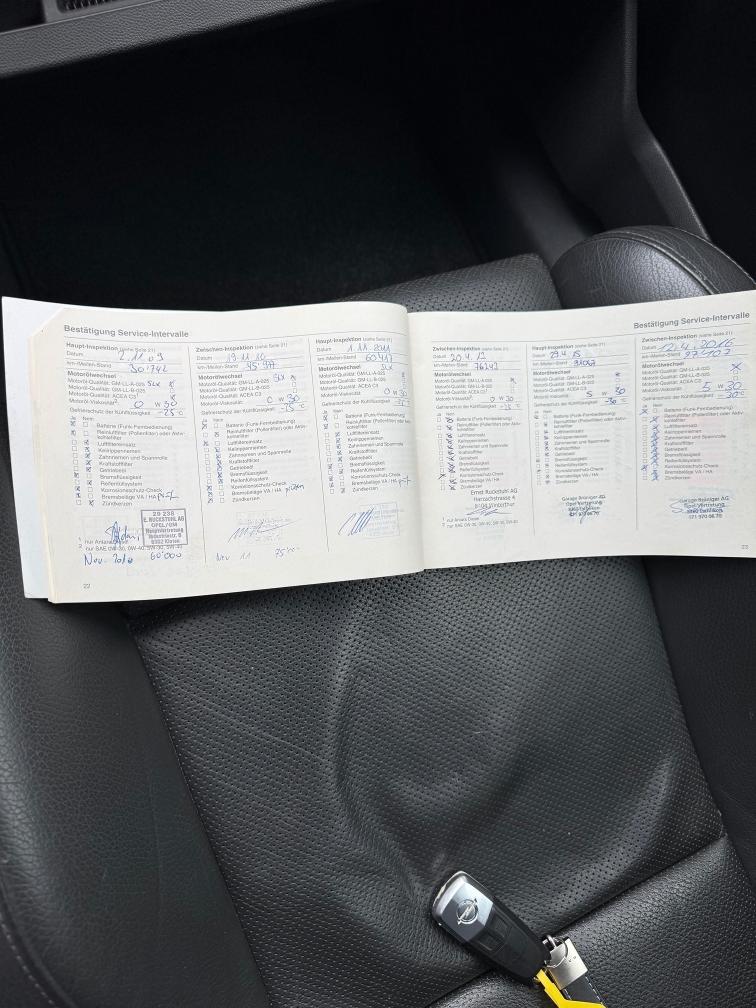 Bestätigung Service-Intervalle
Haupt-Inspektion (siehe Seite 21)
Datum 2.11.09
km-/Meilen-Stand 30'742
Motorölwechsel
Motoröl-Qualität: GM-LL-A-025 SLX
Motoröl-Qualität: GM-LL-B-025
Motoröl-Qualität: ACEA C3
Motoröl-Viskosität 0 W 30
Gefrierschutz der Kühlflüssigkeit -25 °C
Ja Nein
Batterie (Funk-Fernbedienung)
Reinluftfilter (Pollenfilter) oder Aktiv-
kohlefilter
Luftfiltereinsatz
Keilrippenriemen
Zahnriemen und Spannrolle
Kraftstofffilter
Getriebeöl
Bremsflüssigkeit
Reifenfüllsystem
Korrosionsschutz-Check
Bremsbeläge VA / HA
Zündkerzen
29 238
E. RUCKSTUHL AG
OPEL/GM
Hauptvertretung
8302 Kloten
1 nur Anlana Diesel
2 nur SAE 0W-30, 0W-40, 5W-30, 5W-40
Nov. 2010 60'000
22
Zwischen-Inspektion (siehe Seite 21)
Datum 19.11.10
km-/Meilen-Stand
Motorölwechsel
Motoröl-Qualität: GM-LL-A-025 SLX
Motoröl-Qualität: GM-LL-B-025
Motoröl-Qualität: ACEA C3
Motoröl-Viskosität 0 W 30
Gefrierschutz der Kühlflüssigkeit -25 °C
Ja Nein
Batterie (Funk-Fernbedienung)
Reinluftfilter (Pollenfilter) oder Aktiv-
kohlefilter
Luftfiltereinsatz
Keilrippenriemen
Zahnriemen und Spannrolle
Kraftstofffilter
Getriebeöl
Bremsflüssigkeit
Reifenfüllsystem
Korrosionsschutz-Check
Bremsbeläge VA / HA
Zündkerzen
Nov 11
Haupt-Inspektion (siehe Seite 21)
Datum 1.11.2011
km-/Meilen-Stand 60417
Motorölwechsel SLX
Motoröl-Qualität: GM-LL-A-025
Motoröl-Qualität: GM-LL-B-025
Motoröl-Qualität: ACEA C3
Motoröl-Viskosität 0 W 30
Gefrierschutz der Kühlflüssigkeit
Ja Nein
Batterie (Funk-Fernbedienung)
Reinluftfilter (Pollenfilter) oder Aktiv-
kohlefilter
Luftfiltereinsatz
Keilrippenriemen
Zahnriemen und Spannrolle
Kraftstofffilter
Getriebeöl
Bremsflüssigkeit
Reifenfüllsystem
Korrosionsschutz-Check
Bremsbeläge VA / HA
Zündkerzen
Bestätigung Service-Intervalle
Zwischen-Inspektion (siehe Seite 21)
Datum
km-/Meilen-Stand
Motorölwechsel
Motoröl-Qualität: GM-LL-A-025
Motoröl-Qualität: GM-LL-B-025
Motoröl-Qualität: ACEA C3
Motoröl-Viskosität 0 W 30
Gefrierschutz der Kühlflüssigkeit
Ja Nein
Batterie (Funk-Fernbedienung)
Reinluftfilter (Pollenfilter) oder Aktiv-
kohlefilter
Luftfiltereinsatz
Keilrippenriemen
Zahnriemen und Spannrolle
Kraftstofffilter
Getriebeöl
Bremsflüssigkeit
Reifenfüllsystem
Korrosionsschutz-Check
Bremsbeläge VA / HA
Zündkerzen
Ernst Ruckstuhl AG
8404 Winterthur
1 nur Anlana Diesel
2 nur SAE 0W-30, 0W-40, 5W-30, 5W-40
Haupt-Inspektion (siehe Seite 21)
Datum
km-/Meilen-Stand
Motorölwechsel
Motoröl-Qualität: GM-LL-A-025
Motoröl-Qualität: GM-LL-B-025
Motoröl-Qualität: ACEA C3
Motoröl-Viskosität 5 W 30
Gefrierschutz der Kühlflüssigkeit -30 °C
Ja Nein
Batterie (Funk-Fernbedienung)
Reinluftfilter (Pollenfilter) oder Aktiv-
kohlefilter
Luftfiltereinsatz
Keilrippenriemen
Zahnriemen und Spannrolle
Kraftstofffilter
Getriebeöl
Bremsflüssigkeit
Reifenfüllsystem
Korrosionsschutz-Check
Bremsbeläge VA / HA
Zündkerzen
Garage Brüniger AG
Opel Vertretung
071 970 06 70
Zwischen-Inspektion (siehe Seite 21)
Datum 12.4.2016
km-/Meilen-Stand 97'107
Motorölwechsel
Motoröl-Qualität: GM-LL-A-025
Motoröl-Qualität: GM-LL-B-025
Motoröl-Qualität: ACEA C3
Motoröl-Viskosität 5 W 30
Gefrierschutz der Kühlflüssigkeit -30 °C
Ja Nein
Batterie (Funk-Fernbedienung)
Reinluftfilter (Pollenfilter) oder Aktiv-
kohlefilter
Luftfiltereinsatz
Keilrippenriemen
Zahnriemen und Spannrolle
Kraftstofffilter
Getriebeöl
Bremsflüssigkeit
Reifenfüllsystem
Korrosionsschutz-Check
Bremsbeläge VA / HA
Zündkerzen
Garage Brüniger AG
Opel Vertretung
071 970 06 70
23